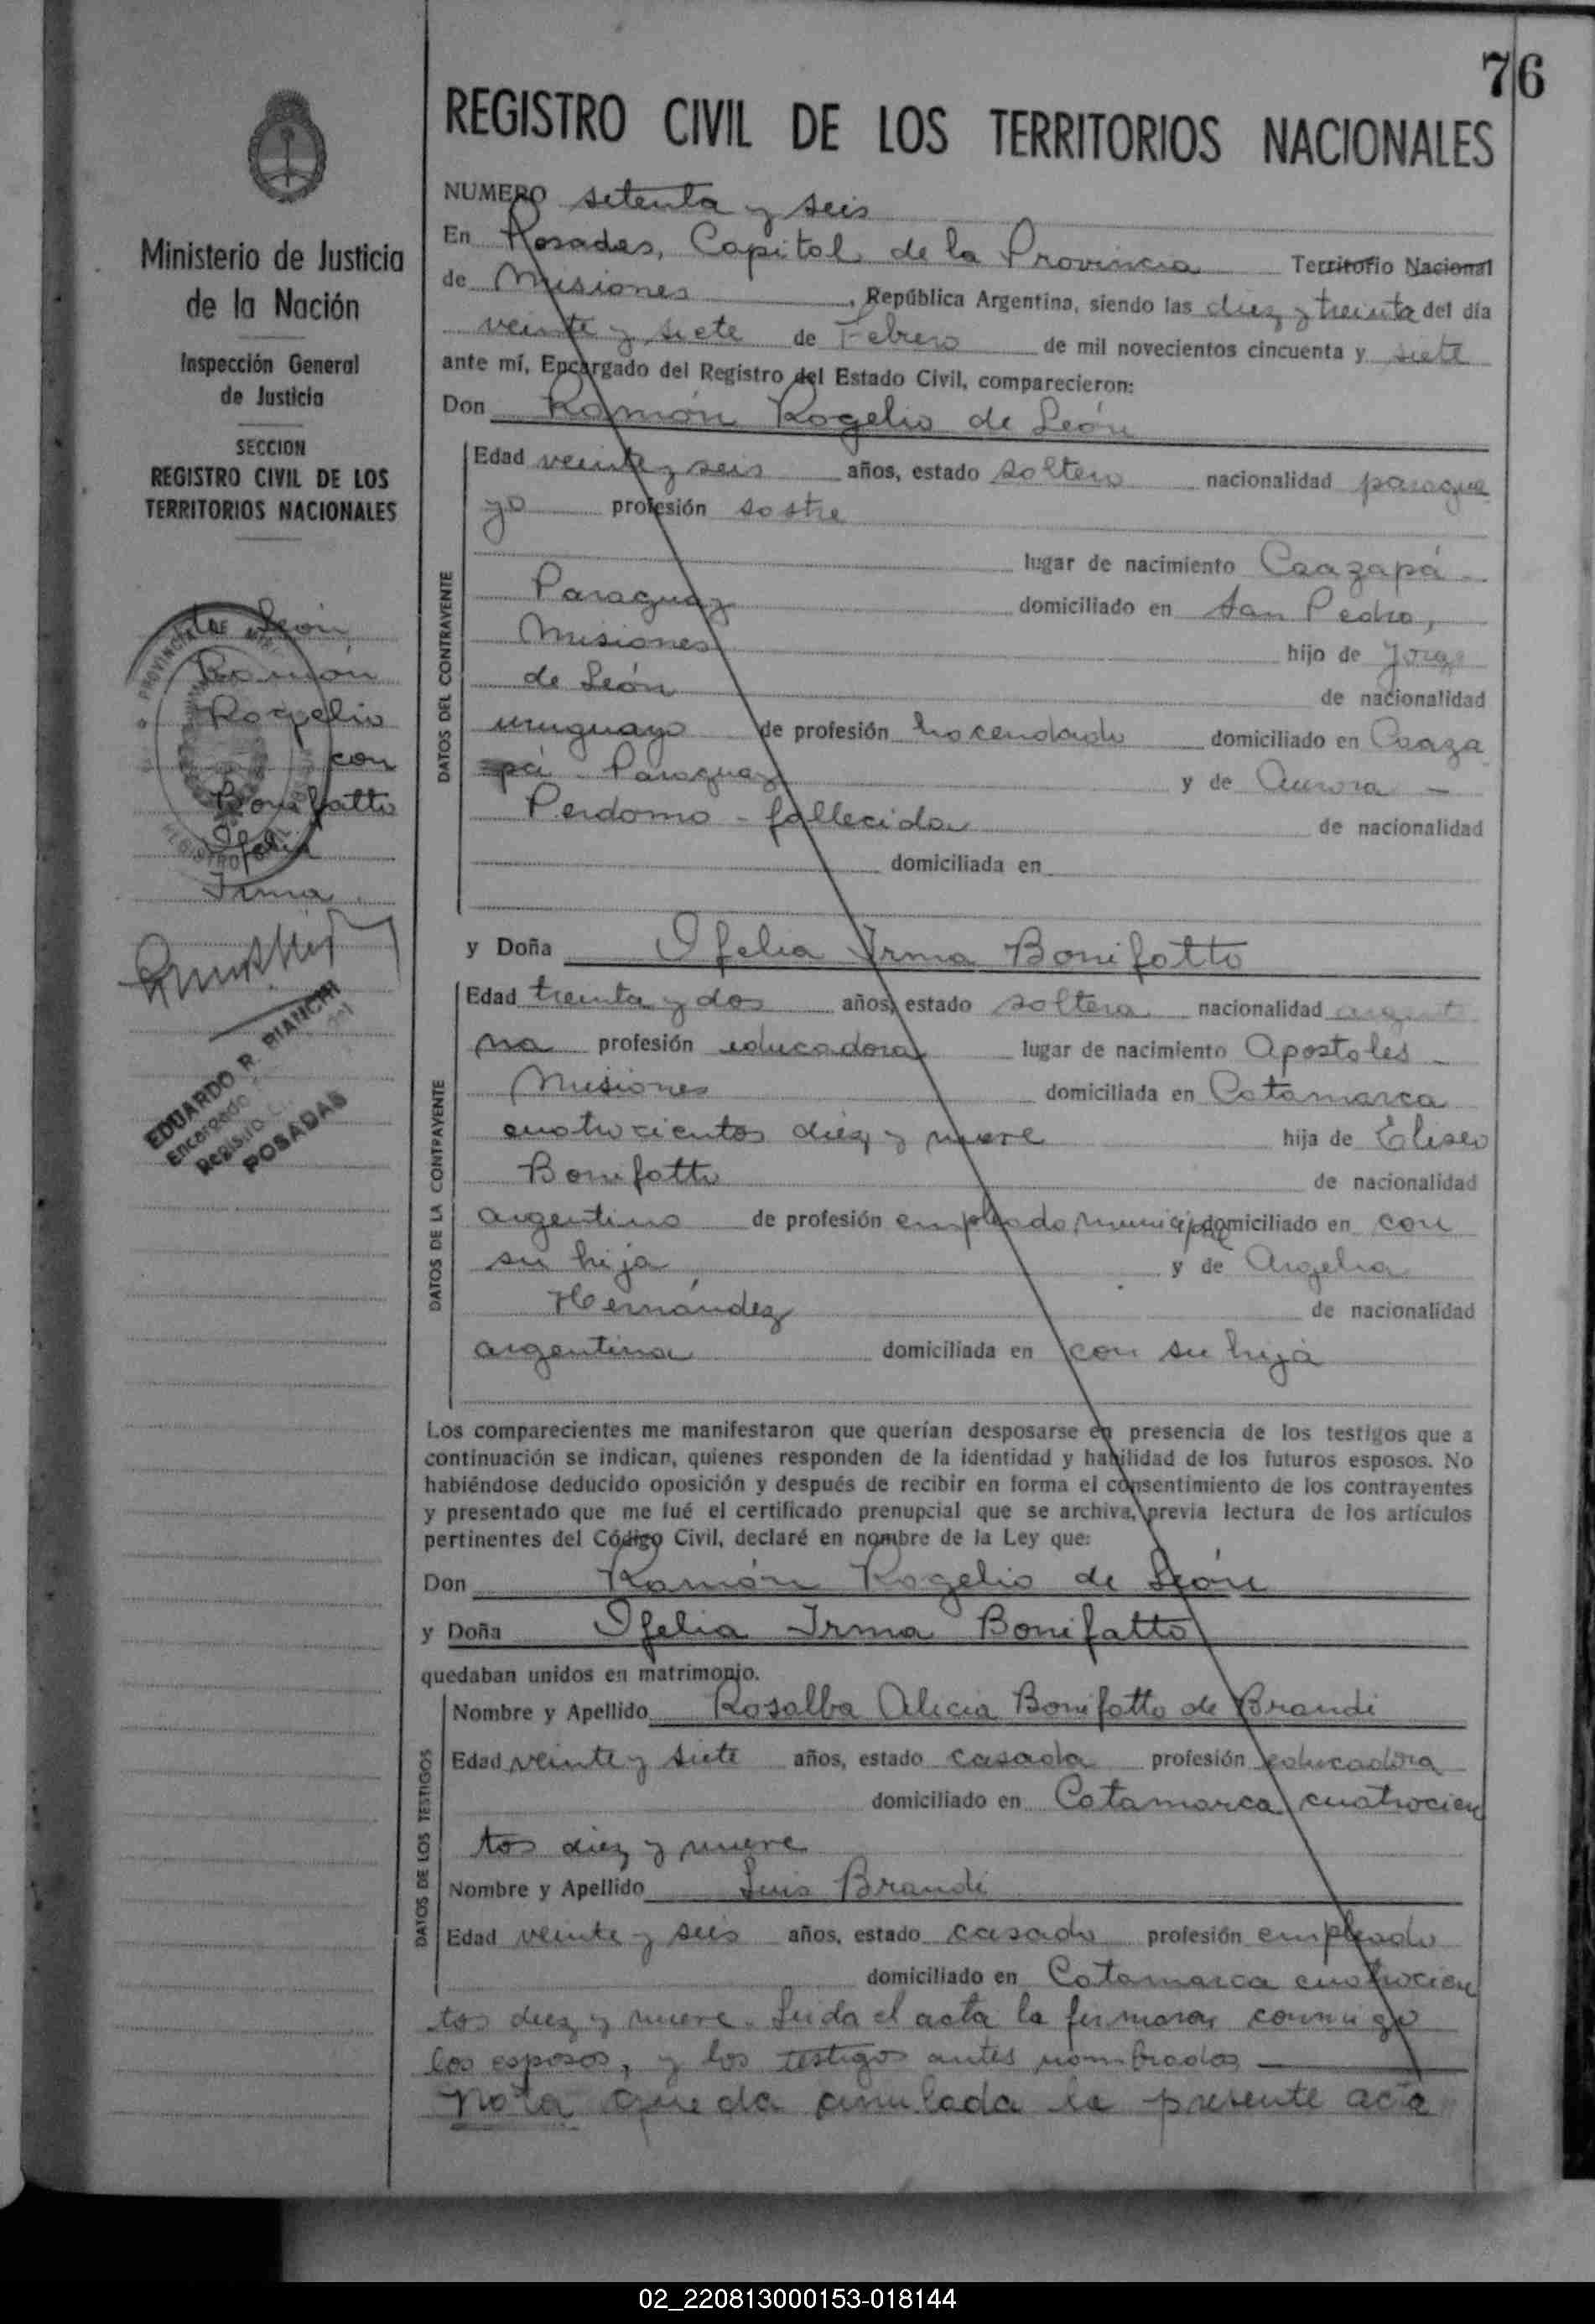 76
REGISTRO CIVIL DE LOS TERRITORIOS NACIONALES
Ministerio de Justicia
de la Nación
Inspección General
de Justicia
SECCION
REGISTRO CIVIL DE LOS
TERRITORIOS NACIONALES
de León
Ramón
Rogelio
con
Bonifatto
Ofelia
Irma
EDUARDO R. BIANCHI
Encargado del
Registro C.
POSADAS
NUMERO setenta y seis
En Posadas, Capital de la Provincia Territorio Nacional
de Misiones, República Argentina, siendo las diez y treinta del día
veinte y siete de Febrero de mil novecientos cincuenta y siete
ante mí, Encargado del Registro del Estado Civil, comparecieron:
Don Ramón Rogelio de León
DATOS DEL CONTRAYENTE
Edad veinte y seis años, estado soltero nacionalidad paragua
yo profesión sastre
lugar de nacimiento Caazapá -
Paraguay domiciliado en San Pedro,
Misiones hijo de Jorge
de León de nacionalidad
uruguayo de profesión hacendado domiciliado en Caaza
pá - Paraguay y de Aurora -
Perdomo - fallecida de nacionalidad
domiciliada en
y Doña Ofelia Irma Bonifatto
DATOS DE LA CONTRAYENTE
Edad treinta y dos años, estado soltera nacionalidad argenti
na profesión educadora lugar de nacimiento Apostoles -
Misiones domiciliada en Catamarca
cuatrocientos diez y nueve hija de Eliseo
Bonifatto de nacionalidad
argentino de profesión empleado municipal domiciliado en con
su hija y de Argelia
Hernández de nacionalidad
argentina domiciliada en con su hija
Los comparecientes me manifestaron que querían desposarse en presencia de los testigos que a
continuación se indican, quienes responden de la identidad y habilidad de los futuros esposos. No
habiéndose deducido oposición y después de recibir en forma el consentimiento de los contrayentes
y presentado que me fué el certificado prenupcial que se archiva, previa lectura de los artículos
pertinentes del Código Civil, declaré en nombre de la Ley que:
Don Ramón Rogelio de León
y Doña Ofelia Irma Bonifatto
quedaban unidos en matrimonio.
DATOS DE LOS TESTIGOS
Nombre y Apellido Rosalba Alicia Bonifatto de Brandi
Edad veinte y siete años, estado casada profesión educadora
domiciliado en Catamarca cuatrocien
tos diez y nueve
Nombre y Apellido Luis Brandi
Edad veinte y seis años, estado casado profesión empleado
domiciliado en Catamarca cuatrocien
tos diez y nueve. Leida el acta la firmaran conmigo
los esposos, y los testigos antes nombrados
Nota queda anulada la presente acta
02_220813000153-018144